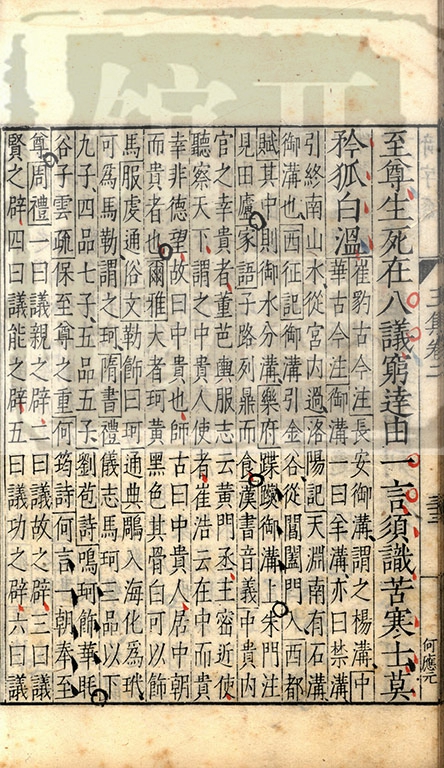 至尊生死在八議窮達由一言須識苦寒士莫
矜狐白溫
崔豹古今注長安御溝謂之楊溝中
華古今注御溝一曰羊溝亦曰禁溝
引終南山水從宮內過洛陽記天淵南有石溝
御溝也西征記御溝引金谷從閶闔門入西都
賦其中則御水分溝樂府蹀躞御溝上朱門注
見田廬家語子路列鼎而食漢書音義中貴內
官之幸貴者董芭輿服志云黃門丞主密近使
聽察天下謂之中貴人使者崔浩云在中而貴
幸非德望故曰中貴也師古曰中貴人居中朝
而貴者也爾雅大者珂黃黑色其骨白可以飾
馬服虔通俗文勒飾曰珂通典鵰入海化為玳
可為馬勒謂之珂隋書禮儀志馬珂三品以下
九子四品七子五品五子劉苞詩鳴珂飾華眊
谷子雲疏保至尊之重何筠詩何言一朝奉至
尊周禮一曰議親之辟二曰議故之辟三曰議
賢之辟四曰議能之辟五曰議功之辟六曰議
何應元